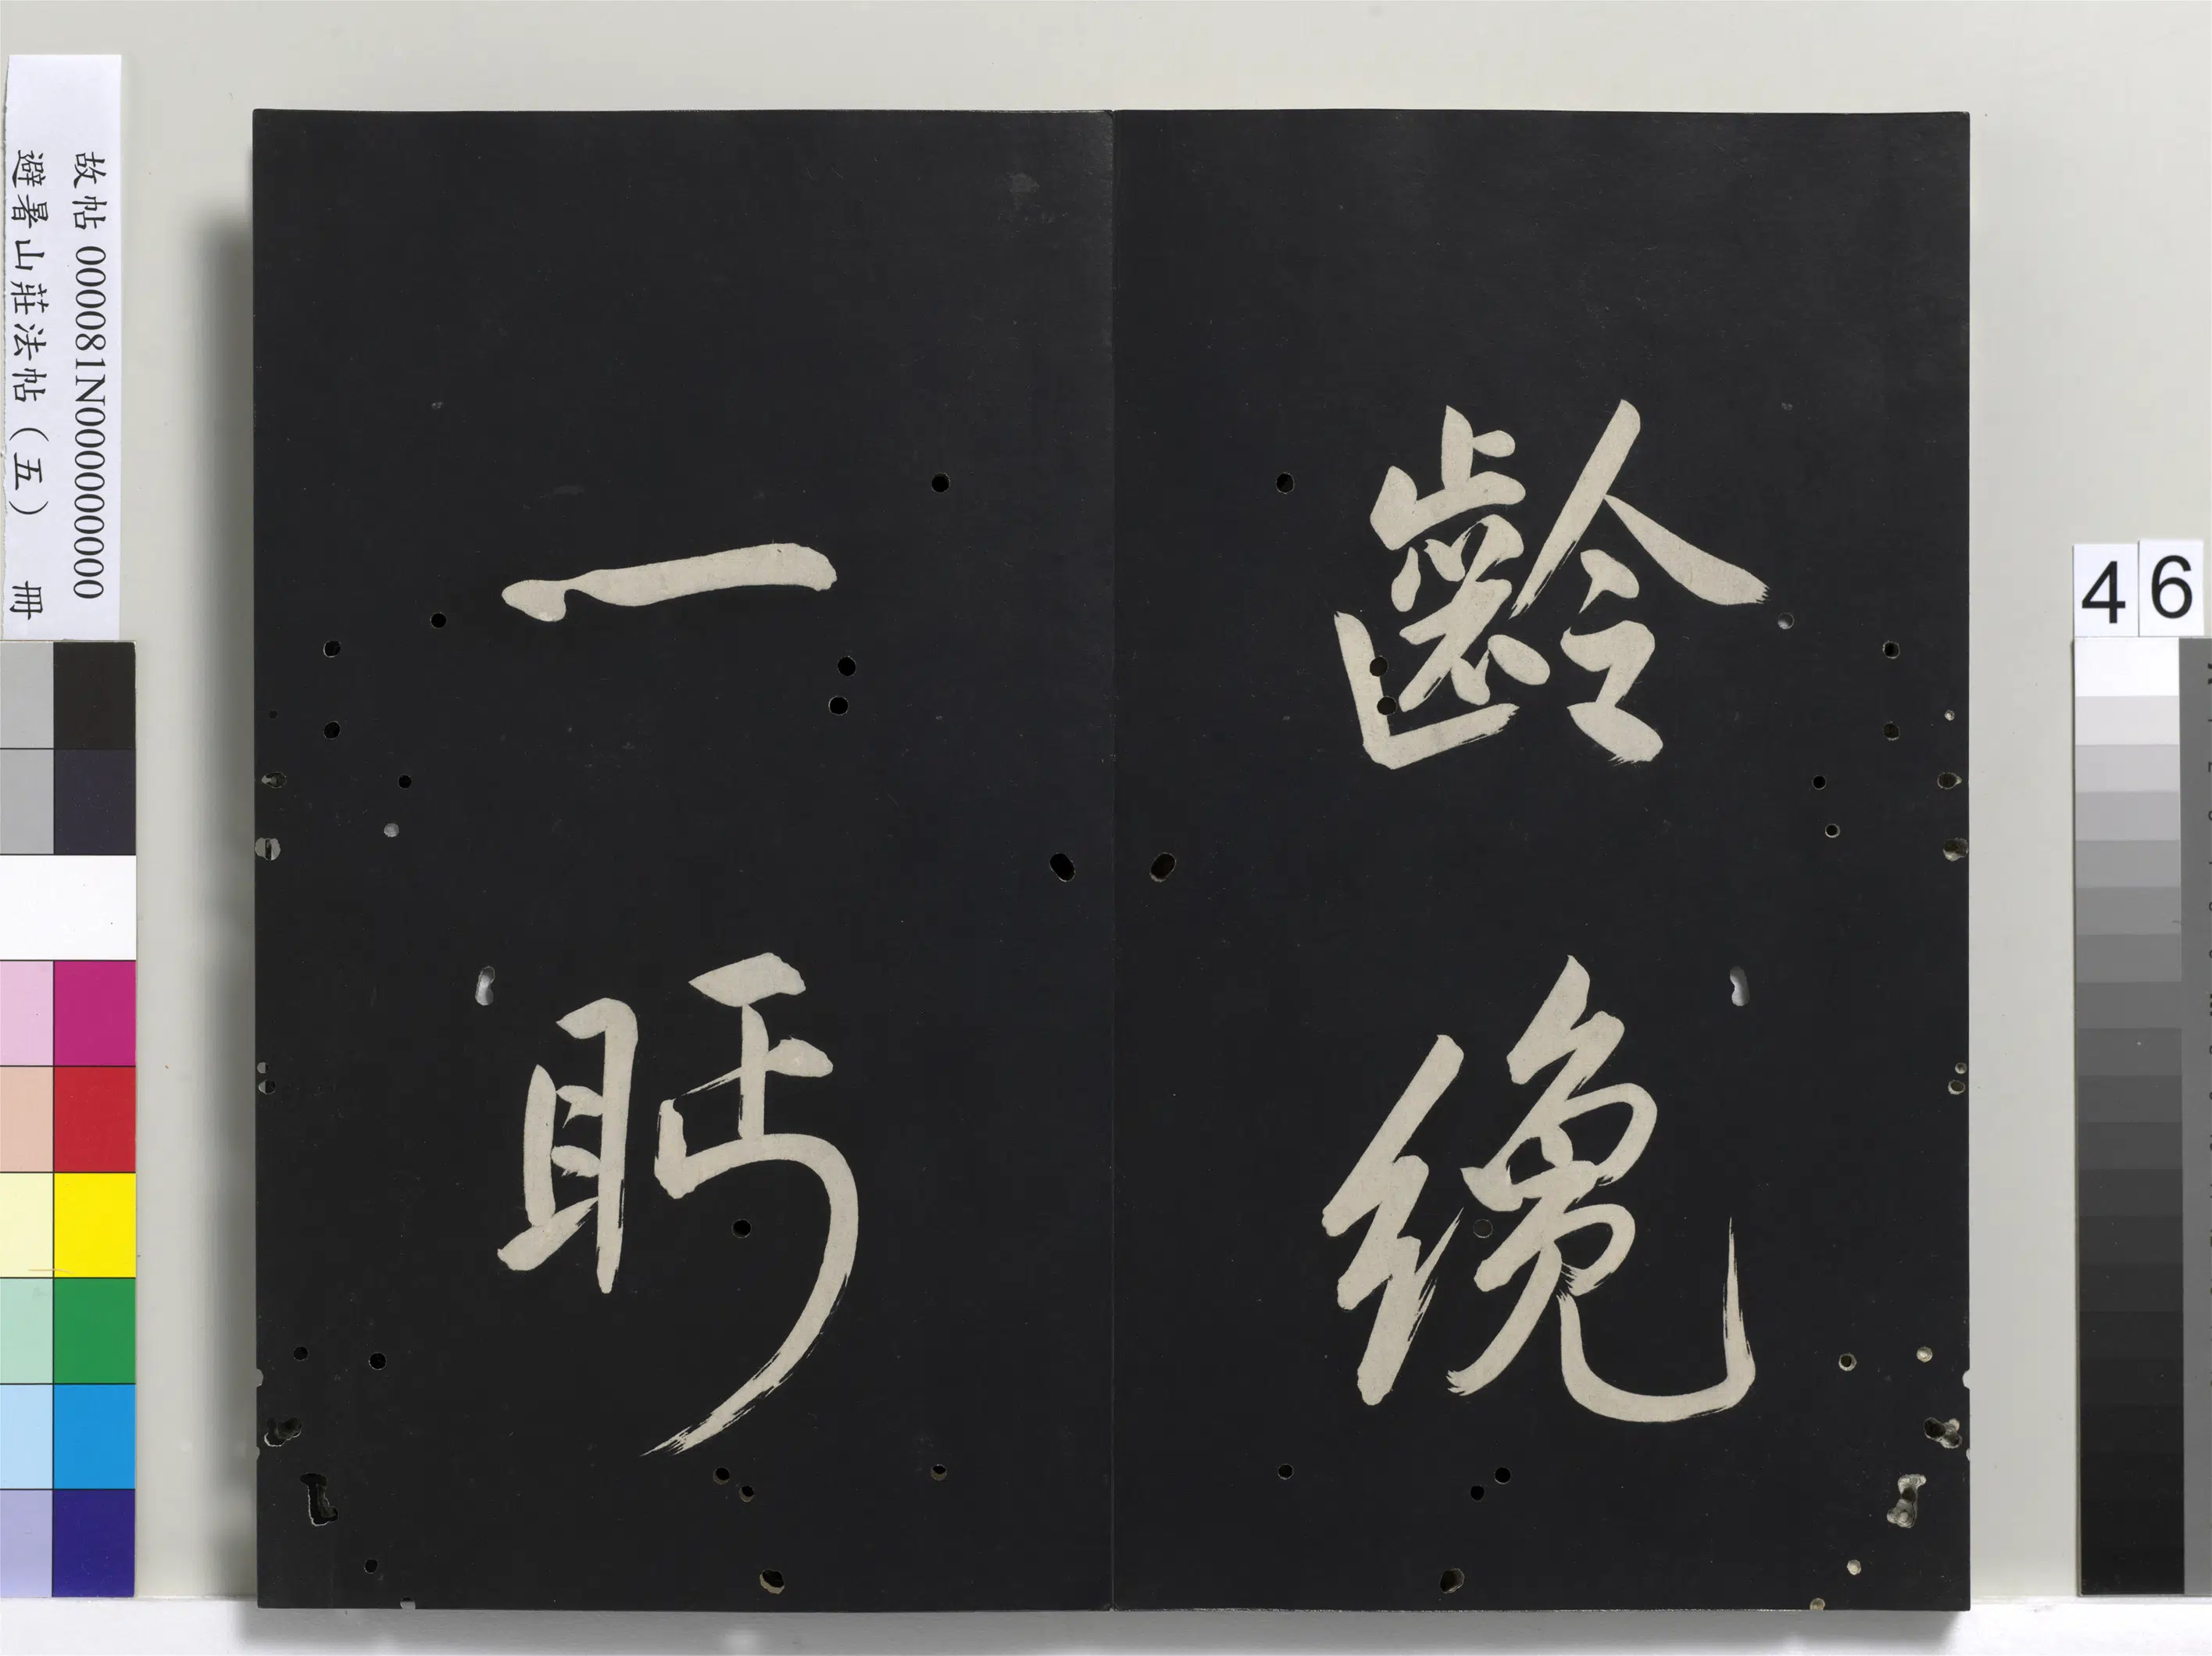 齡纔
一眄
故帖 000081N000000000
避暑山莊法帖（五） 冊
46